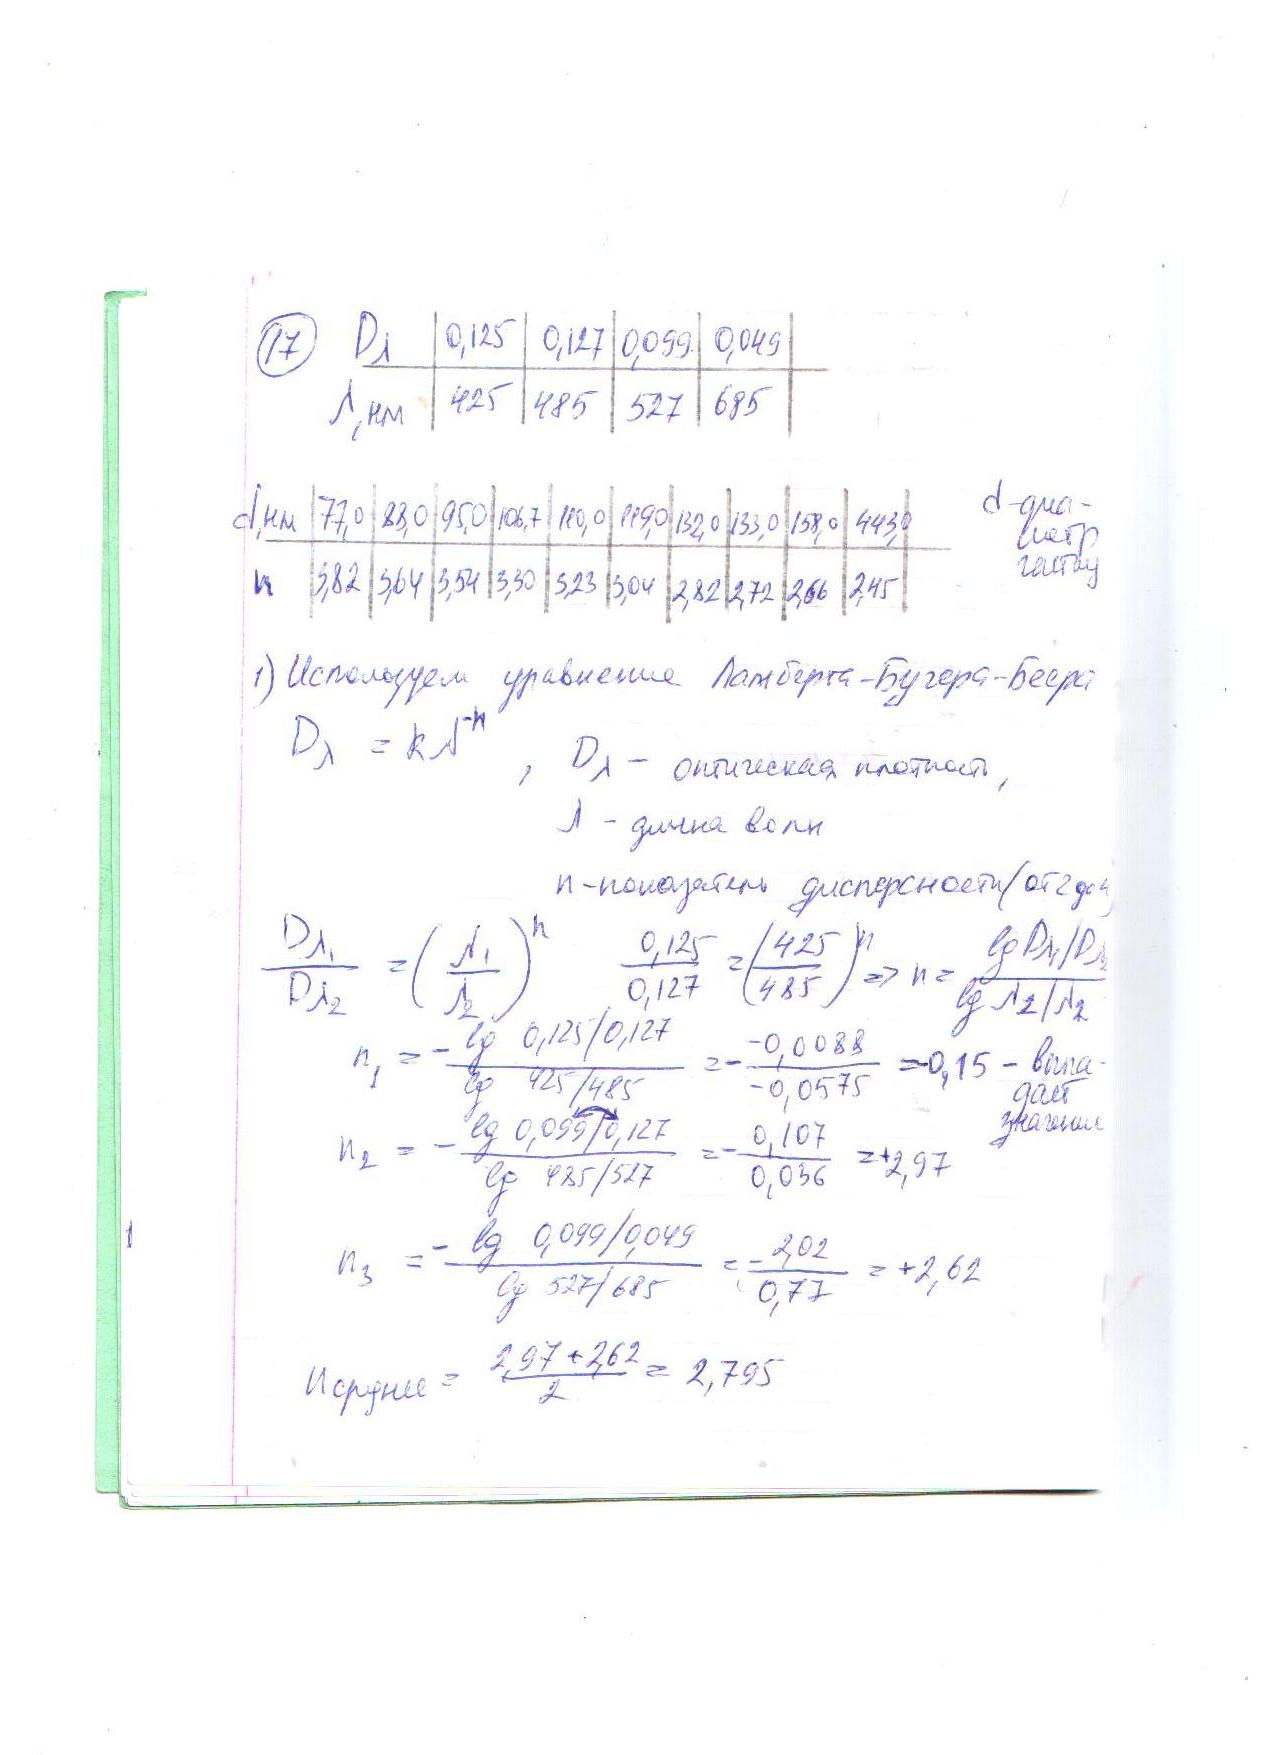 17 Dλ 0,125 0,127 0,099 0,049
λ, нм 425 485 527 685
d, нм 77,0 83,0 95,0 106,7 110,0 119,0 132,0 133,0 158,0 443,0 d-диа-
метр
частиц
n 3,82 3,64 3,54 3,30 3,23 3,04 2,82 2,72 2,66 2,45
1) Используем уравнение Ламберта-Бугера-Беера
Dλ = kλ^-n , Dλ - оптическая плотность,
λ - длина волн
n-показатель дисперсности (от 2 до 4)
Dλ1/Dλ2 = (λ1/λ2)^n 0,125/0,127 = (425/485)^n => n = lg Dλ1/Dλ2 / lg λ2/λ2
n1 = - lg 0,125/0,127 / lg 425/485 = - -0,0088/-0,0575 = -0,15 - выпа-
дает
значение
n2 = - lg 0,099/0,127 / lg 485/527 = - 0,107/0,036 = +2,97
n3 = - lg 0,099/0,049 / lg 527/685 = - 2,02/0,77 = +2,62
n среднее = 2,97 + 2,62 / 2 = 2,795